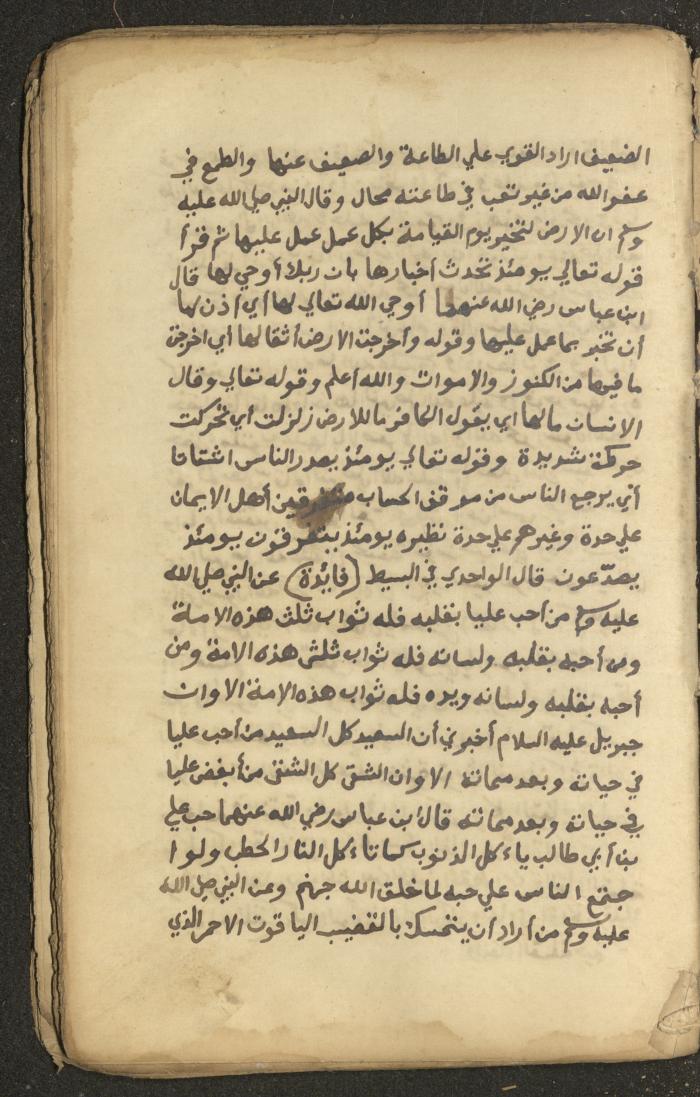 الضعيف اراد القوي علي الطاعة والضعيف عنها والطمع في
عفو الله من غير تعب في طاعته محال وقال النبي صلي الله عليه
وسلم ان الارض لتخبر يوم القيامة بكل عمل عمل عليها ثم قرأ
قوله تعالي يومئذ تحدث أخبارها بان ربك أوحي لها قال
ابن عباس رضي الله عنهما أوحي الله تعالي لها أي أذن لها
أن تخبر بما عمل عليها وقوله وأخرجت الارض أثقالها أي اخرجت
ما فيها من الكنوز والاموات والله أعلم وقوله تعالي وقال
الانسان مالها اي يقول الكافر ما للارض زلزلت أي تحركت
حركة شديدة وقوله تعالي يومئذ يصدر الناس اشتاتا
أي يرجع الناس من موقف الحساب متفرقين أهل الايمان
علي حدة وغيرهم علي حدة نظيره يومئذ يتفرقون يومئذ
يصدّعون قال الواحدي في البسيط (فائدة) عن النبي صلي الله
عليه وسلم من أحب عليا بقلبه فله ثواب ثلث هذه الامة
ومن أحبه بقلبه ولسانه فله ثواب ثلثي هذه الامة ومن
أحبه بقلبه ولسانه ويده فله ثواب هذه الامة الا وان
جبريل عليه السلام أخبرني أن السعيد كل السعيد من أحب عليا
في حياته وبعد مماته الا وان الشقى كل الشقى من أبغض عليا
في حياته وبعد مماته قال ابن عباس رضي الله عنهما حب علي
بن أبي طالب ياءكل الذنوب كما تاءكل النار الحطب ولو ا
جتمع الناس علي حبه لما خلق الله جهنم وعن النبي صلي الله
عليه وسلم من أراد أن يتمسك بالقضيب الياقوت الاحمر الذي